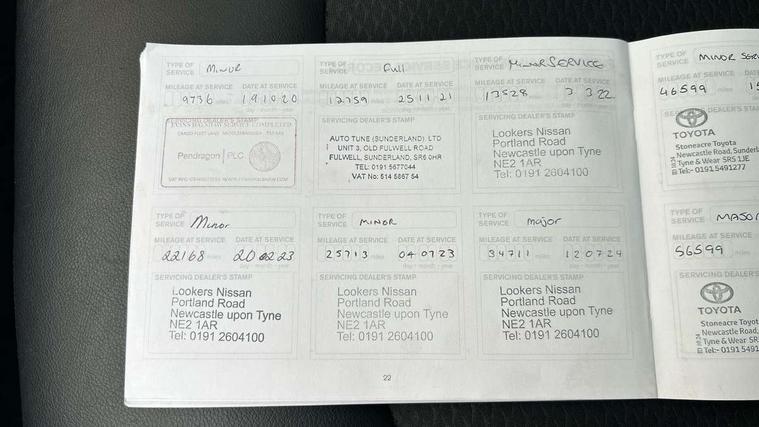 TYPE OF SERVICE Minor
MILEAGE AT SERVICE DATE AT SERVICE
9736 miles 191020
SERVICING DEALER'S STAMP
Pendragon PLC
TYPE OF SERVICE Full
MILEAGE AT SERVICE DATE AT SERVICE
12759 251121
SERVICING DEALER'S STAMP
AUTO TUNE (SUNDERLAND) LTD
UNIT 3, OLD FULWELL ROAD
FULWELL, SUNDERLAND, SR6 0HR
TEL: 0191 5677044
VAT No: 514 5867 54
TYPE OF SERVICE Minor SERVICE
MILEAGE AT SERVICE DATE AT SERVICE
13528 miles 3 3 22
SERVICING DEALER'S STAMP
Lookers Nissan
Portland Road
Newcastle upon Tyne
NE2 1AR
Tel: 0191 2604100
TYPE OF SERVICE Minor
MILEAGE AT SERVICE DATE AT SERVICE
22168 miles
SERVICING DEALER'S STAMP
Lookers Nissan
Portland Road
Newcastle upon Tyne
NE2 1AR
Tel: 0191 2604100
TYPE OF SERVICE MINOR
MILEAGE AT SERVICE DATE AT SERVICE
25713 miles 040723
SERVICING DEALER'S STAMP
Lookers Nissan
Portland Road
Newcastle upon Tyne
NE2 1AR
Tel: 0191 2604100
TYPE OF SERVICE major
MILEAGE AT SERVICE DATE AT SERVICE
34711 miles 120724
SERVICING DEALER'S STAMP
Lookers Nissan
Portland Road
Newcastle upon Tyne
NE2 1AR
Tel: 0191 2604100
22
TYPE OF SERVICE MINOR
MILEAGE AT SERVICE
46599 miles
TOYOTA
Stoneacre Toyota
Newcastle Road,
Tyne & Wear SR5 1JE
Tel:- 0191 5491277
TYPE OF SERVICE
MILEAGE AT SERVICE
56599 miles
SERVICING DEALER'S
TOYOTA
Stoneacre
Newcastle Road,
Tyne & Wear
Tel:- 0191